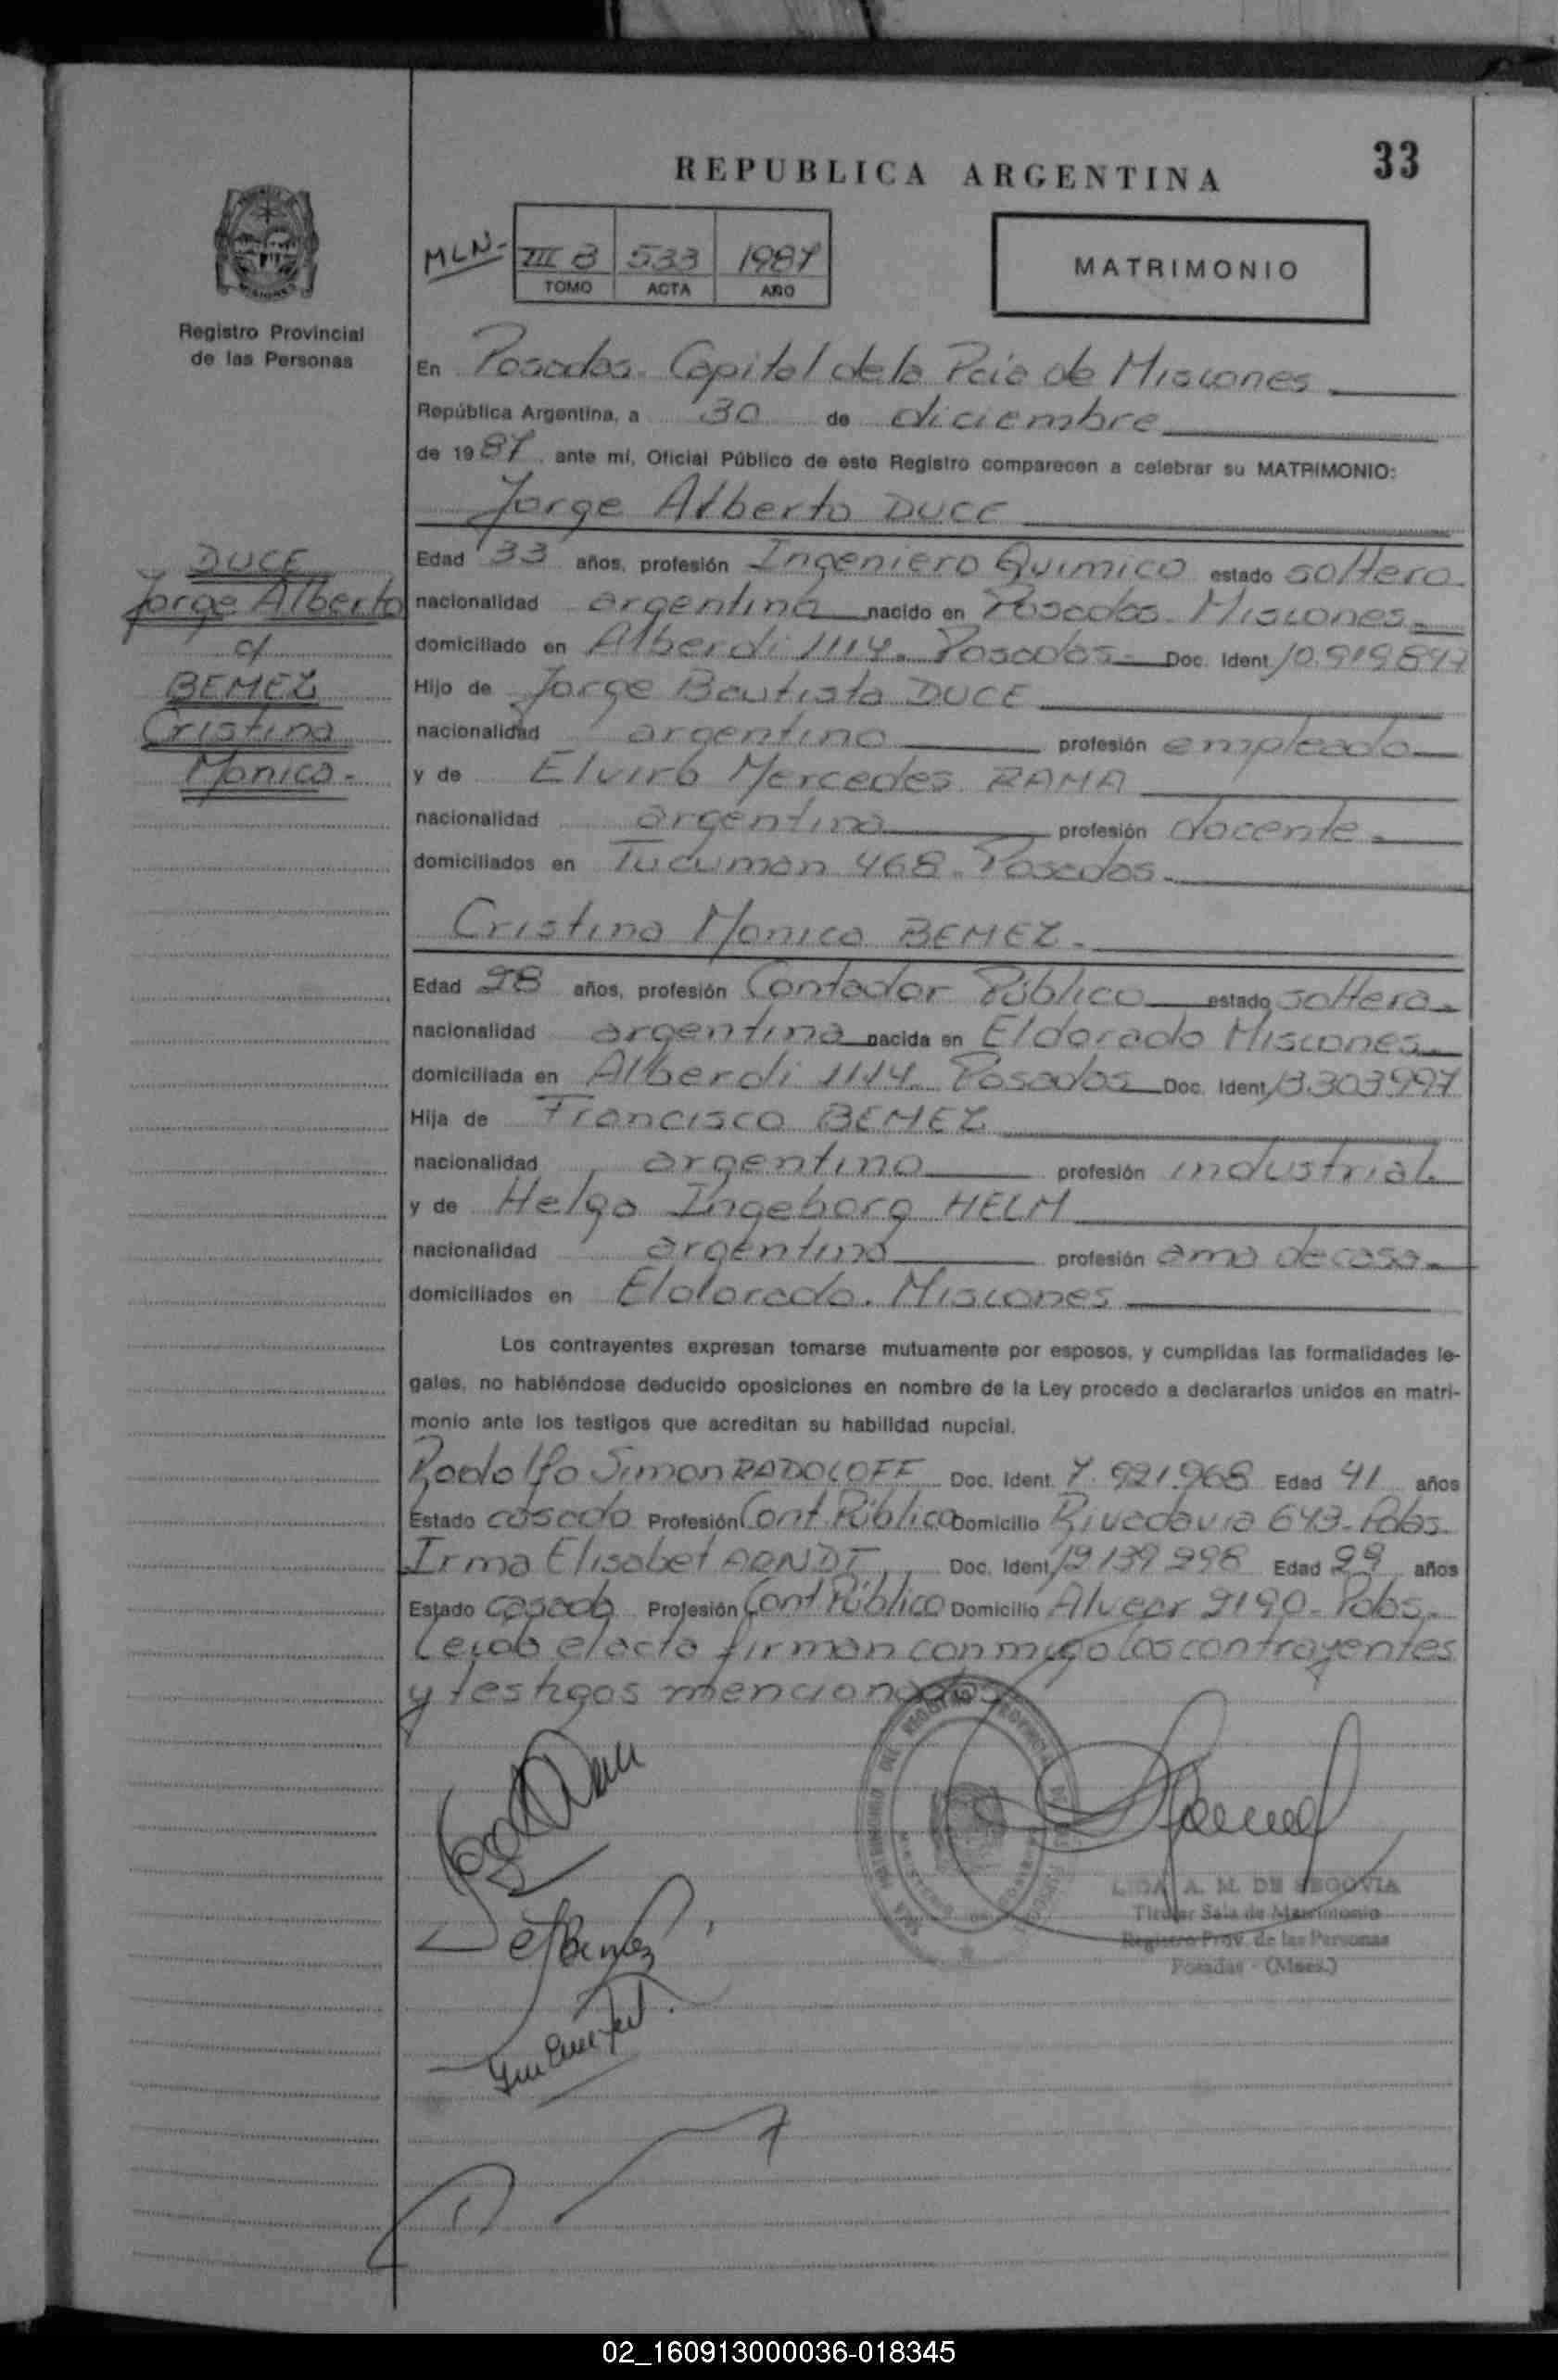 33
REPUBLICA ARGENTINA
MLN- III B 533 1987
TOMO ACTA AÑO
MATRIMONIO
Registro Provincial
de las Personas
En Posadas. Capital de la Pcia de Misiones
República Argentina, a 30 de diciembre
de 1987 ante mi, Oficial Público de este Registro comparecen a celebrar su MATRIMONIO:
Jorge Alberto DUCE
DUCE
Jorge Alberto
c/
BEMEZ
Cristina
Monica.-
Edad 33 años, profesión Ingeniero Quimico estado soltero.
nacionalidad argentina nacido en Posadas. Misiones.
domiciliado en Alberdi 1114. Posadas. Doc. Ident. 10.919.897
Hijo de Jorge Bautista DUCE
nacionalidad argentino profesión empleado
y de Elvira Mercedes RAMA
nacionalidad argentina profesión docente.
domiciliados en Tucuman 468. Posadas.
Cristina Monica BEMEZ.
Edad 28 años, profesión Contador Público estado soltera.
nacionalidad argentina nacida en Eldorado Misiones.
domiciliada en Alberdi 1114. Posadas Doc. Ident. 13.303.997
Hija de Francisco BEMEZ
nacionalidad argentino profesión industrial.
y de Helga Ingeborg HELM
nacionalidad argentina profesión ama de casa.
domiciliados en Eldorado. Misiones
Los contrayentes expresan tomarse mutuamente por esposos, y cumplidas las formalidades le-
gales, no habiéndose deducido oposiciones en nombre de la Ley procedo a declararlos unidos en matri-
monio ante los testigos que acreditan su habilidad nupcial.
Rodolfo Simon RADOLOFF Doc. Ident. 7.921.968 Edad 41 años
Estado casado Profesión Cont Público Domicilio Rivadavia 643. Pdas.
Irma Elisabet ARNDT Doc. Ident. 12 139 298 Edad 29 años
Estado casada Profesión Cont Público Domicilio Alvear 2190. Pdas.
Leida el acta firman conmigo los contrayentes
y testigos mencionados
A. M. DE SEGOVIA
Titular Sala de Matrimonio
Registro Prov. de las Personas
Posadas - (Mnes.)
02_160913000036-018345